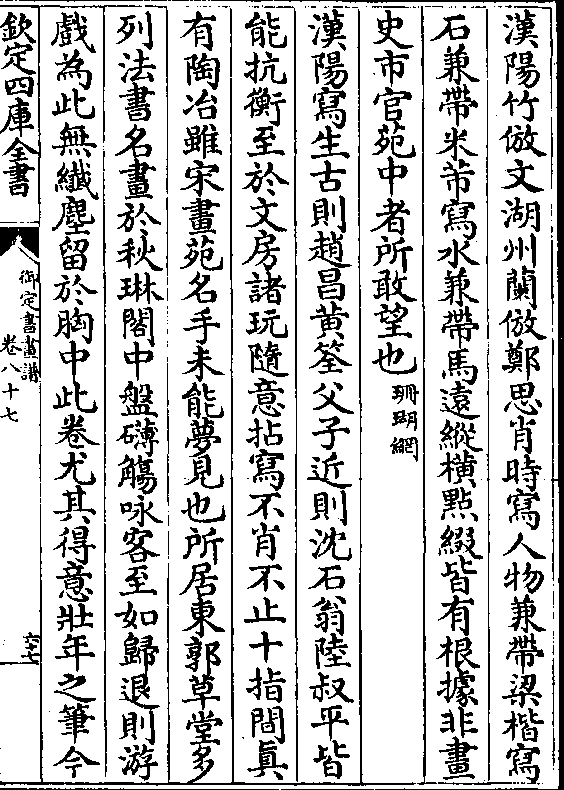 漢陽竹倣文湖州蘭倣鄭思肖時寫人物兼帶梁楷寫
石兼帶米芾寫水兼帶馬遠縱橫點綴皆有根據非畫
史市官苑中者所敢望也珊瑚網
漢陽寫生古則趙昌黃筌父子近則沈石翁陸叔平皆
能抗衡至於文房諸玩隨意拈寫不肖不止十指間真
有陶冶雖宋畫苑名手未能夢見也所居東郭草堂多
列法書名畫於秋琳閣中盤礴觴咏客至如歸退則游
戲為此無纖塵留於胸中此卷尤其得意壯年之筆今
欽定四庫全書
御定書畫譜
卷八十七
六十七